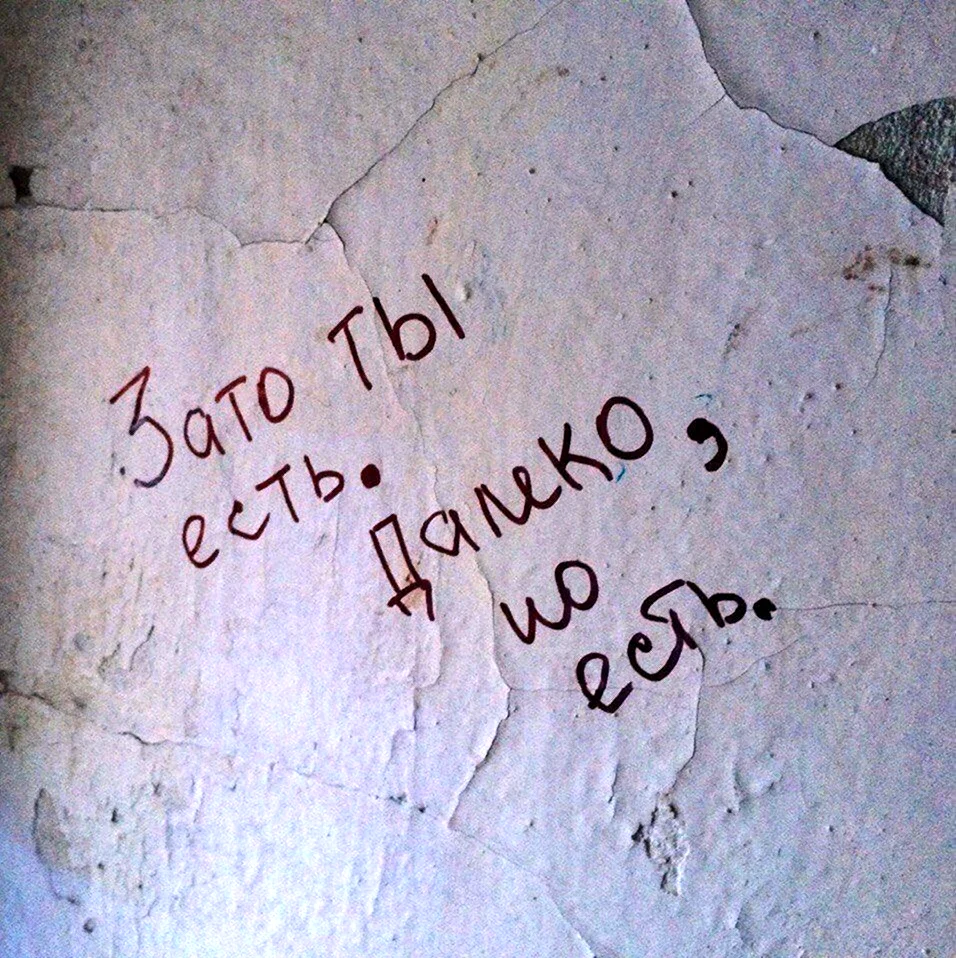 Зато ты
есть.
Далеко,
но
есть.